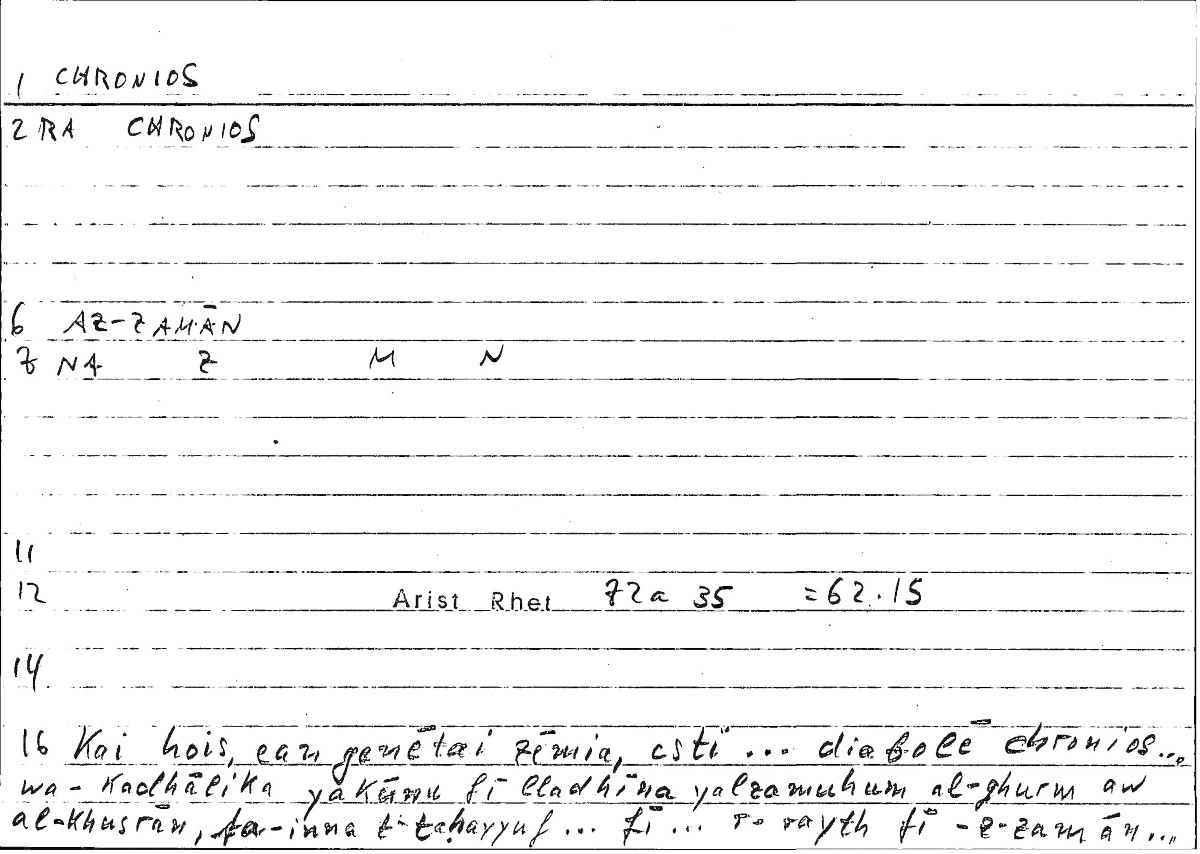 1 CHRONIOS
2 RA CHRONIOS
6 AZ-ZAMĀN
7 NA Z M N
11
12 Arist Rhet 72a 35 =62.15
14
16 Kai hois, ean genētai zēmia, esti ... diabolē chronios...
wa-kadhālika yakūnu fī lladhīna yalzamuhum al-ghurm aw
al-khusrān, fa-inna t-taḥayyuf ... fī ... r-rayth fī -z-zamān...